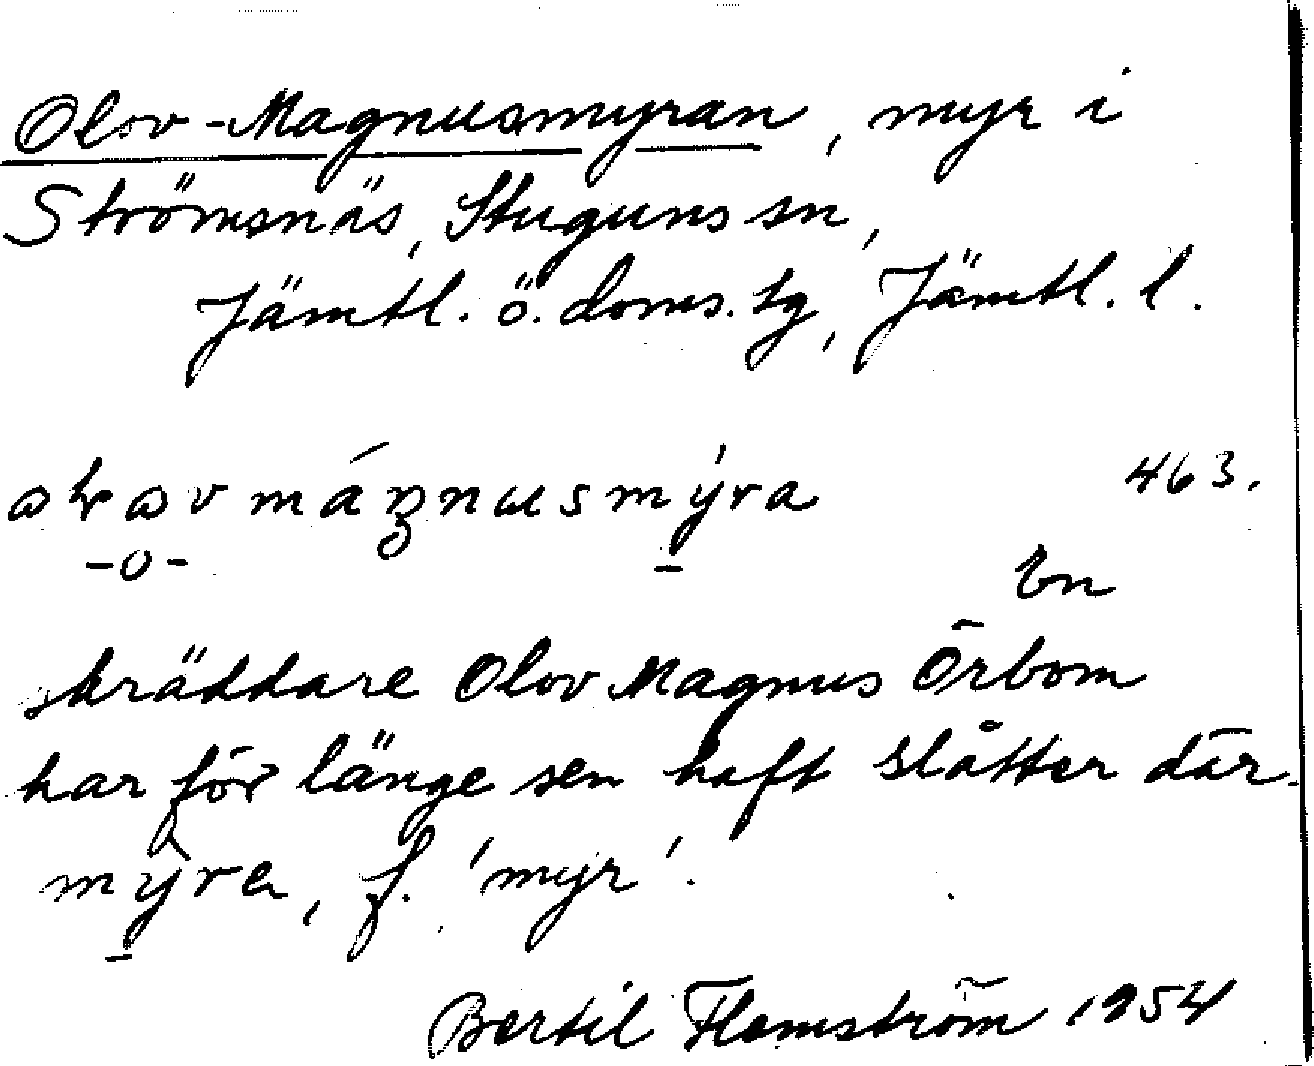 Olov-Magnusmyran, myr i
Strömsnäs, Stuguns sn,
Jämtl. ö. doms. tg, Jämtl. l.
463.
En
skräddare Olov Magnus Örbom
har för länge sen haft slåtter där.
f. 'myr'.
Bertil Flemström 1954